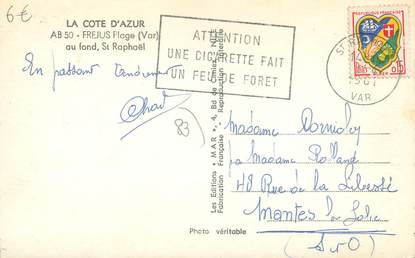 6€
LA COTE D'AZUR
AB 50 - FREJUS Plage (Var)
au fond, St Raphaël
ATTENTION
UNE CIGARETTE FAIT
UN FEU DE FORET
REPUBLIQUE FRANÇAISE
VAR
En passant
83
Les Editions "MAR", 4, Bd de Cimiez - NICE
Fabrication Française - Reproduction Interdite
Madame
Madame Rolland
48 Rue de la Liberté
Mantes la Jolie
(S et O)
Photo véritable